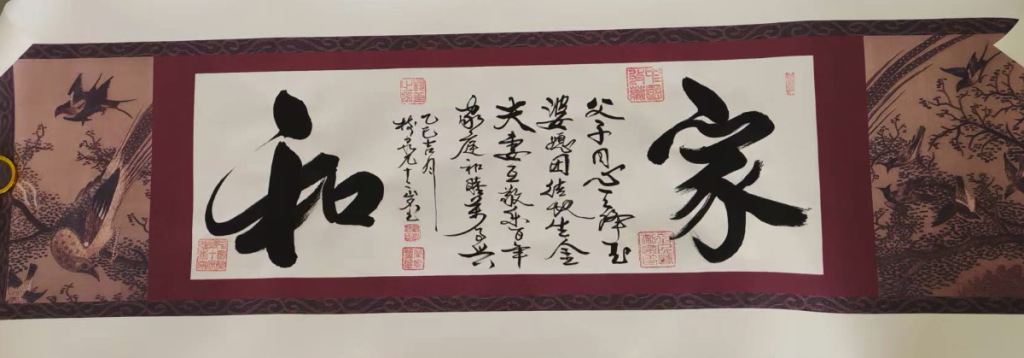 家
父子同心土变玉
婆媳团结地生金
夫妻互敬乐百年
家庭和睦万事兴
乙巳吉月
和